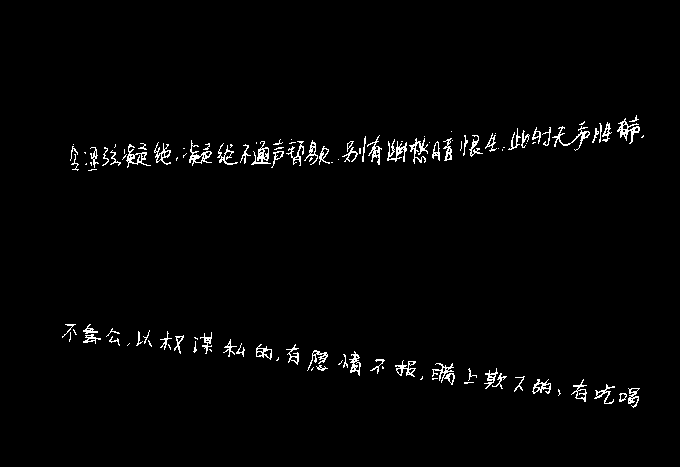 泉冷涩弦凝绝,凝绝不通声暂歇.别有幽愁暗恨生.此时无声胜有声.
不奉公,以权谋私的,有愿情不报,瞒上欺下的、有吃喝